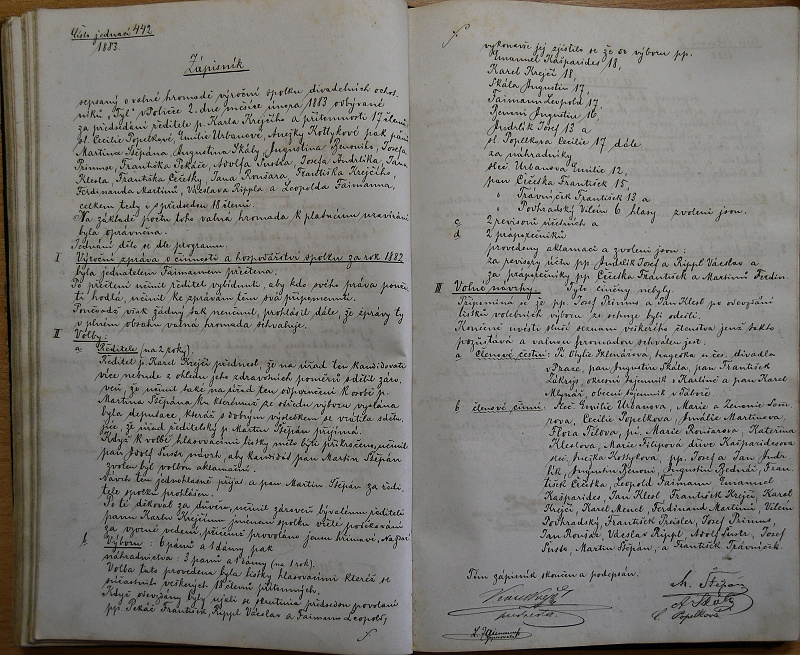 Číslo jednací 442
1883
Zápisník
sepsaný o valné hromadě výroční spolku divadelních ochot
níků „Tyl" v Poličce 2. dne měsíce února 1883 odbývané
za předsedání ředitele p. Karla Krejčího a přítomnosti 17 členů
sl. Cecilie Popelkové, Emilie Urbanové, Anežky Kottykové pak pánů
Martina Štěpána, Augustina Skály, Augustina Benoniho, Josefa
Primusa, Františka Pekáče, Adolfa Šustra, Josefa Andrlíka, Jana
Klesla, Františka Čičetky, Jana Roušara, Františka Krejčího,
Ferdinanda Martinů, Václava Rippla a Leopolda Taimanna,
celkem tedy i s předsedou 18 členů.
Na základě počtu toho valná hromada k platnému uzavírání
byla oprávněna.
Jednání dělo se dle programu.
I Výroční zpráva o činnosti a hospodářství spolku za rok 1882
byla jednatelem Taimanem přečtena.
Po přečtení učinil ředitel vybídnutí, aby kdo svého práva použí
ti hodlá, učinil ke zprávám těm svá připomenutí.
Poněvadž však žádný tak neučinil, prohlásil dále, že zprávy ty
v plném obsahu valná hromada schvaluje.
II Volby:
a Ředitele (na 2 roky).
Ředitel p. Karel Krejčí přednesl, že na úřad ten kandidovati
více nebude z ohledu jeho zdravotních poměrů a sdělil záro
veň, že učinil také na úřad ten odporučení k osobě p.
Martina Štěpána ku kterémuž ze středu výboru vyslána
byla deputace, kteráž s dobrým výsledkem se vrátila sdělu
jíc, že úřad ředitelský p. Martin Štěpán přijímá.
Když k volbě hlasovacími lístky mělo býti přikročeno, učinil
pan Adolf Šustr návrh aby kandidát pan Martin Štěpán
zvolen byl volbou aklamační.
Návrh ten jednohlasně přijat a pan Martin Štěpán za ředi
tele spolku prohlášen.
Po té děkoval za důvěru, učinil zároveň bývalému řediteli
panu Karlu Krejčímu jménem spolku vřelé poděkování
za vzorné vedení, přičemž provoláno jemu hřímavé „Na zdar"
b Výboru: 6 pánů a 1 dámy pak
náhradnictva: 3 panů a 1 dámy (na 1 rok).
Volba tato provedena byla lístky hlasovacími kteréž se
súčastnili veškerých 18 členů přítomných.
Když odevzdány byly ujali se skrutinia předsedou povolaní
pp. Pekáč František, Rippl Václav a Taiman Leopold,
vykonavše jej zjistilo se že do výboru pp.
Emanuel Kašparides 18,
Karel Krejčí 18,
Skála Augustin 17,
Taimann Leopold 17,
Benoni Augustin 16,
Andrlík Josef 13 a
sl. Popelkova Cecilie 17 dále
za náhradníky
sleč. Urbanova Emilie 12,
pan Čičetka František 15,
" Trávníček František 13 a
" Podhradský Vilém 6 hlasy zvoleni jsou.
c 2 revisorů účetních a
d 2 praporečníků
provedeny aklamací a zvoleni jsou:
za revisory účtů pp. Andrlík Josef a Rippl Václav a
za praporečníky pp. Čičetka František a Martinů Ferdin.
III Volné návrhy. Tyto činěny nebyly.
Připomíná se že pp. Josef Primus a Jan Klesl po odevzdání
lístků volebních výboru ze schůze byli odešli.
Konečně uvésti sluší seznam veškerého členstva jenž takto
pozůstává a valnou hromadou schválen jest.
a Členové čestní: Pí Otylie Sklenářova, tragedka n. čes. divadla
v Praze, pan Augustin Skála, pan František
Zákrejs, okresní tajemník v Karlíně a pan Karel
Mlynář, obecní tajemník v Táboře
b členové činní: Sleč. Emilie Urbanova, Marie a Zenonie Lom
rova, Cecilie Popelkova, Amálie Martinova
Flora Tillova, pí. Marie Roušarova, Kateřina
Kleslova, Marie Filipova dříve Kašparidesova
sleč. Anežka Kottykova, pp. Josef a Jan Andr
lík, Augustin Benoni, Augustin Bednář, Fran
tišek Čičetka, Leopold Taimann, Emanuel
Kašparides, Jan Klesl, František Krejčí, Karel
Krejčí, Karel Mencl, Ferdinand Martinů, Vilém
Podhradský, František Preisler, Josef Primus,
Jan Roušar, Václav Rippl, Adolf Šustr, Josef
Šusta, Martin Štěpán, a František Trávníček.
Tím zápisník skončen a podepsán.
M. Štěpán
Karel Krejčí
předseda
A. Skála
L. Taimann
C. Popelková